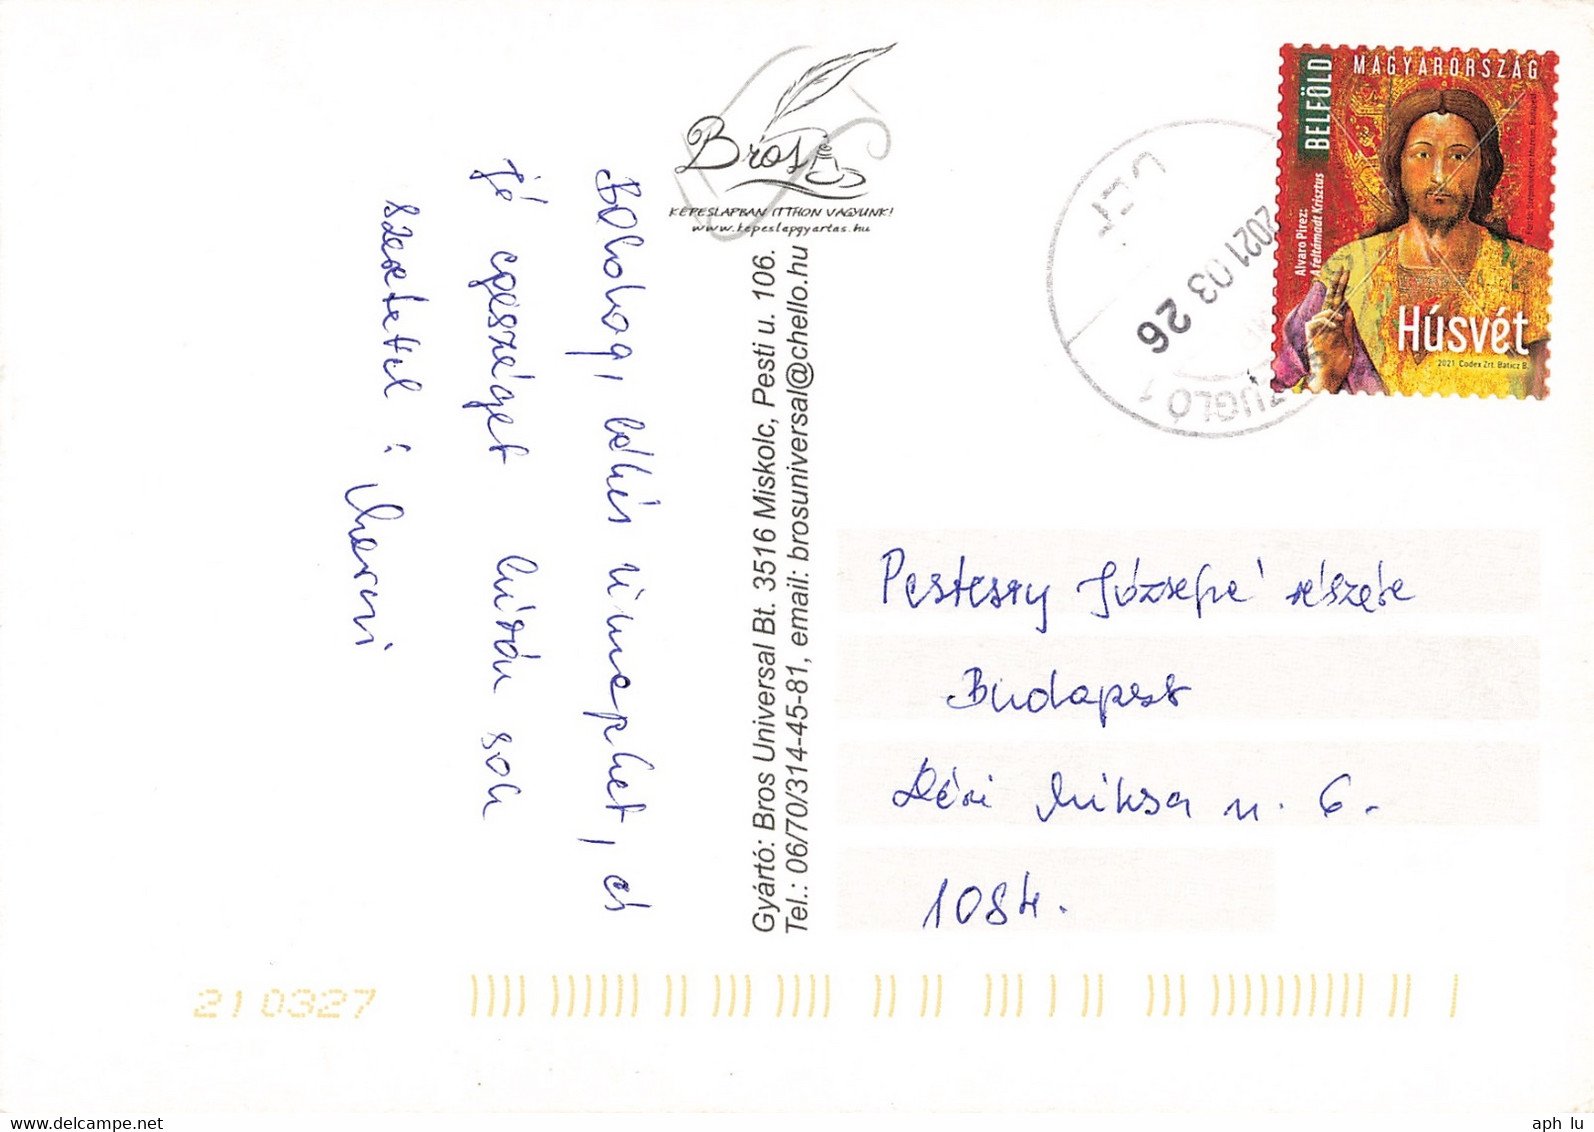 Boldog, békés ünnepket, és
jó egészséget kíván sok
szeretettel :
Bros
KÉPESLAPBAN ITTHON VAGYUNK!
www.kepeslapgyartas.hu
Gyártó: Bros Universal Bt. 3516 Miskolc, Pesti u. 106.
Tel.: 06/70/314-45-81, email: brosuniversal@chello.hu
2021 03 26
ZUGLÓ 1
BELFÖLD
MAGYARORSZÁG
Alvaro Pirez:
A feltámadt Krisztus
Húsvét
2021 Codex Zrt. Baticz B.
Pesteszy Józsefné részére
Budapest
Déri Miksa u. 6.
1084.
210327
aph_lu